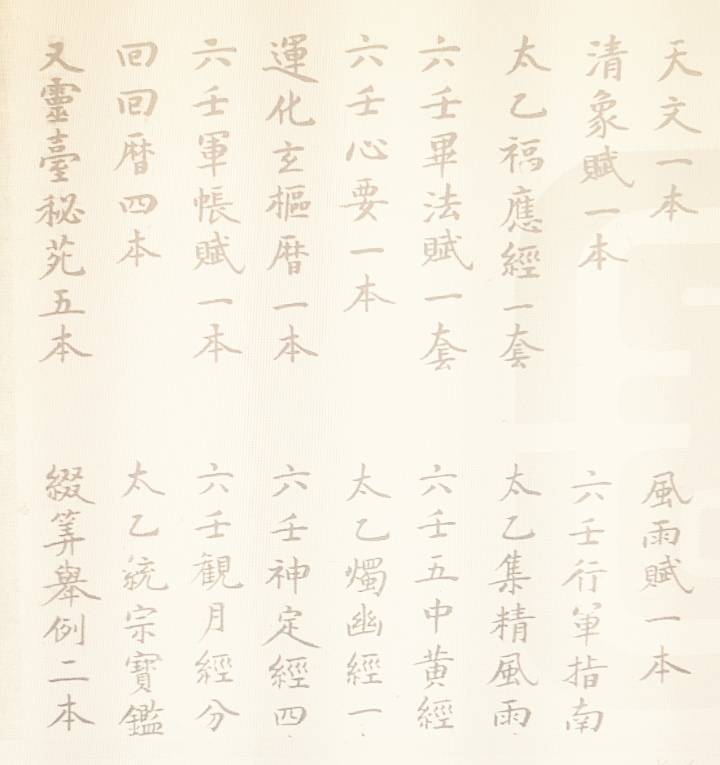 天文一本
風雨賦一本
清象賦一本
六壬行軍指南
太乙福應經一套
太乙集精風雨
六壬畢法賦一套
六壬五中黄經
六壬心要一本
太乙燭幽經一
運化玄樞暦一本
六壬神定經四
六壬軍帳賦一本
六壬觀月經分
回回暦四本
太乙統宗寶鑑
又靈臺秘苑五本
綴筭舉例二本